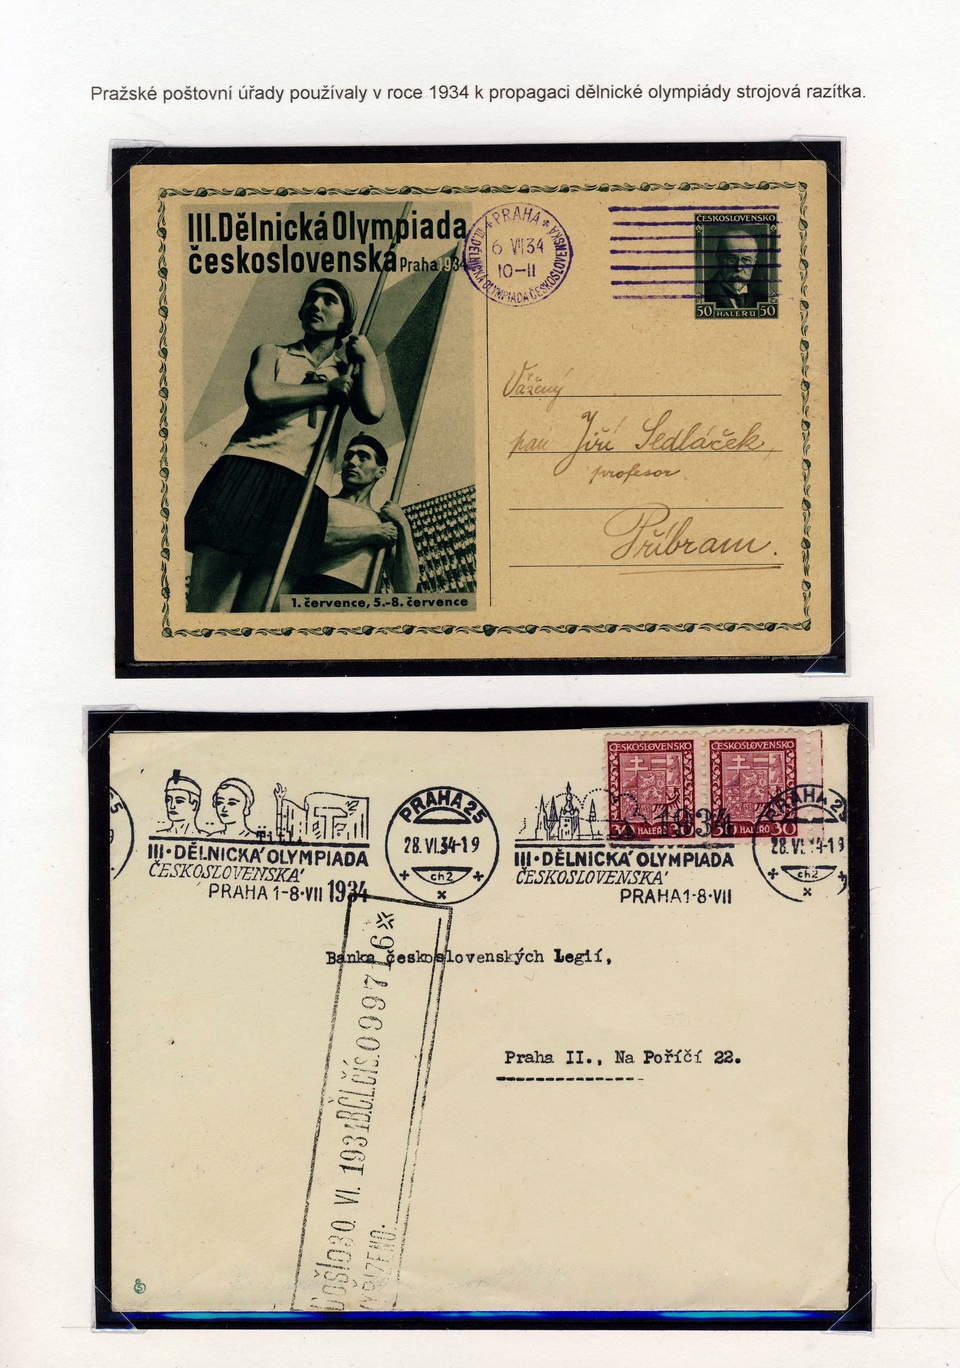 Pražské poštovní úřady používaly v roce 1934 k propagaci dělnické olympiády strojová razítka.
III.Dělnická Olympiada
československá Praha 1934
PRAHA
6 VII 34
10-11
III. DĚLNICKÁ OLYMPIADA ČESKOSLOVENSKÁ
ČESKOSLOVENSKO
50 HALÉŘŮ 50
Vážený
pan Jiří Sedláček,
profesor
Příbram.
1. července, 5.-8. července
ČESKOSLOVENSKO ČESKOSLOVENSKO
30 HALÉŘŮ 30 30 HALÉŘŮ 30
III•DĚLNICKÁ OLYMPIADA
ČESKOSLOVENSKÁ
PRAHA 1-8•VII 1934
PRAHA 25
28.VI.34-19
ch2
1934
III•DĚLNICKÁ OLYMPIADA
ČESKOSLOVENSKÁ
PRAHA 1-8•VII
PRAHA 25
28.VI.34-19
ch2
Banka československých Legií,
Praha II., Na Poříčí 22.
DOŠLO 30. VI. 1934 B.Čl.ČÍS. 099716
VYŘÍZENO: